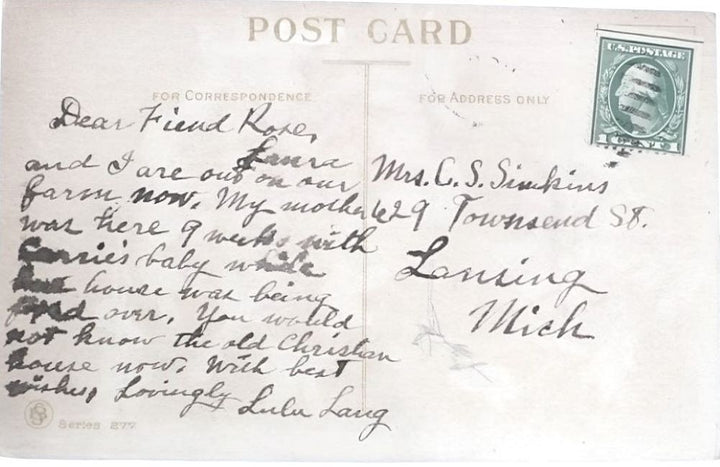 POST CARD
U.S. POSTAGE
1 CENT 1
FOR CORRESPONDENCE
FOR ADDRESS ONLY
Dear Fiend Rose,
Laura
and I are out on our
farm now. My mother
was here 9 weeks with
Carrie's baby while
house was being
over. You would
not know the old Christian
house now. With best
wishes, Lovingly
Lulu Lang
Mrs. C. S. Simkins
629 Townsend St.
Lansing
Mich
Series 277